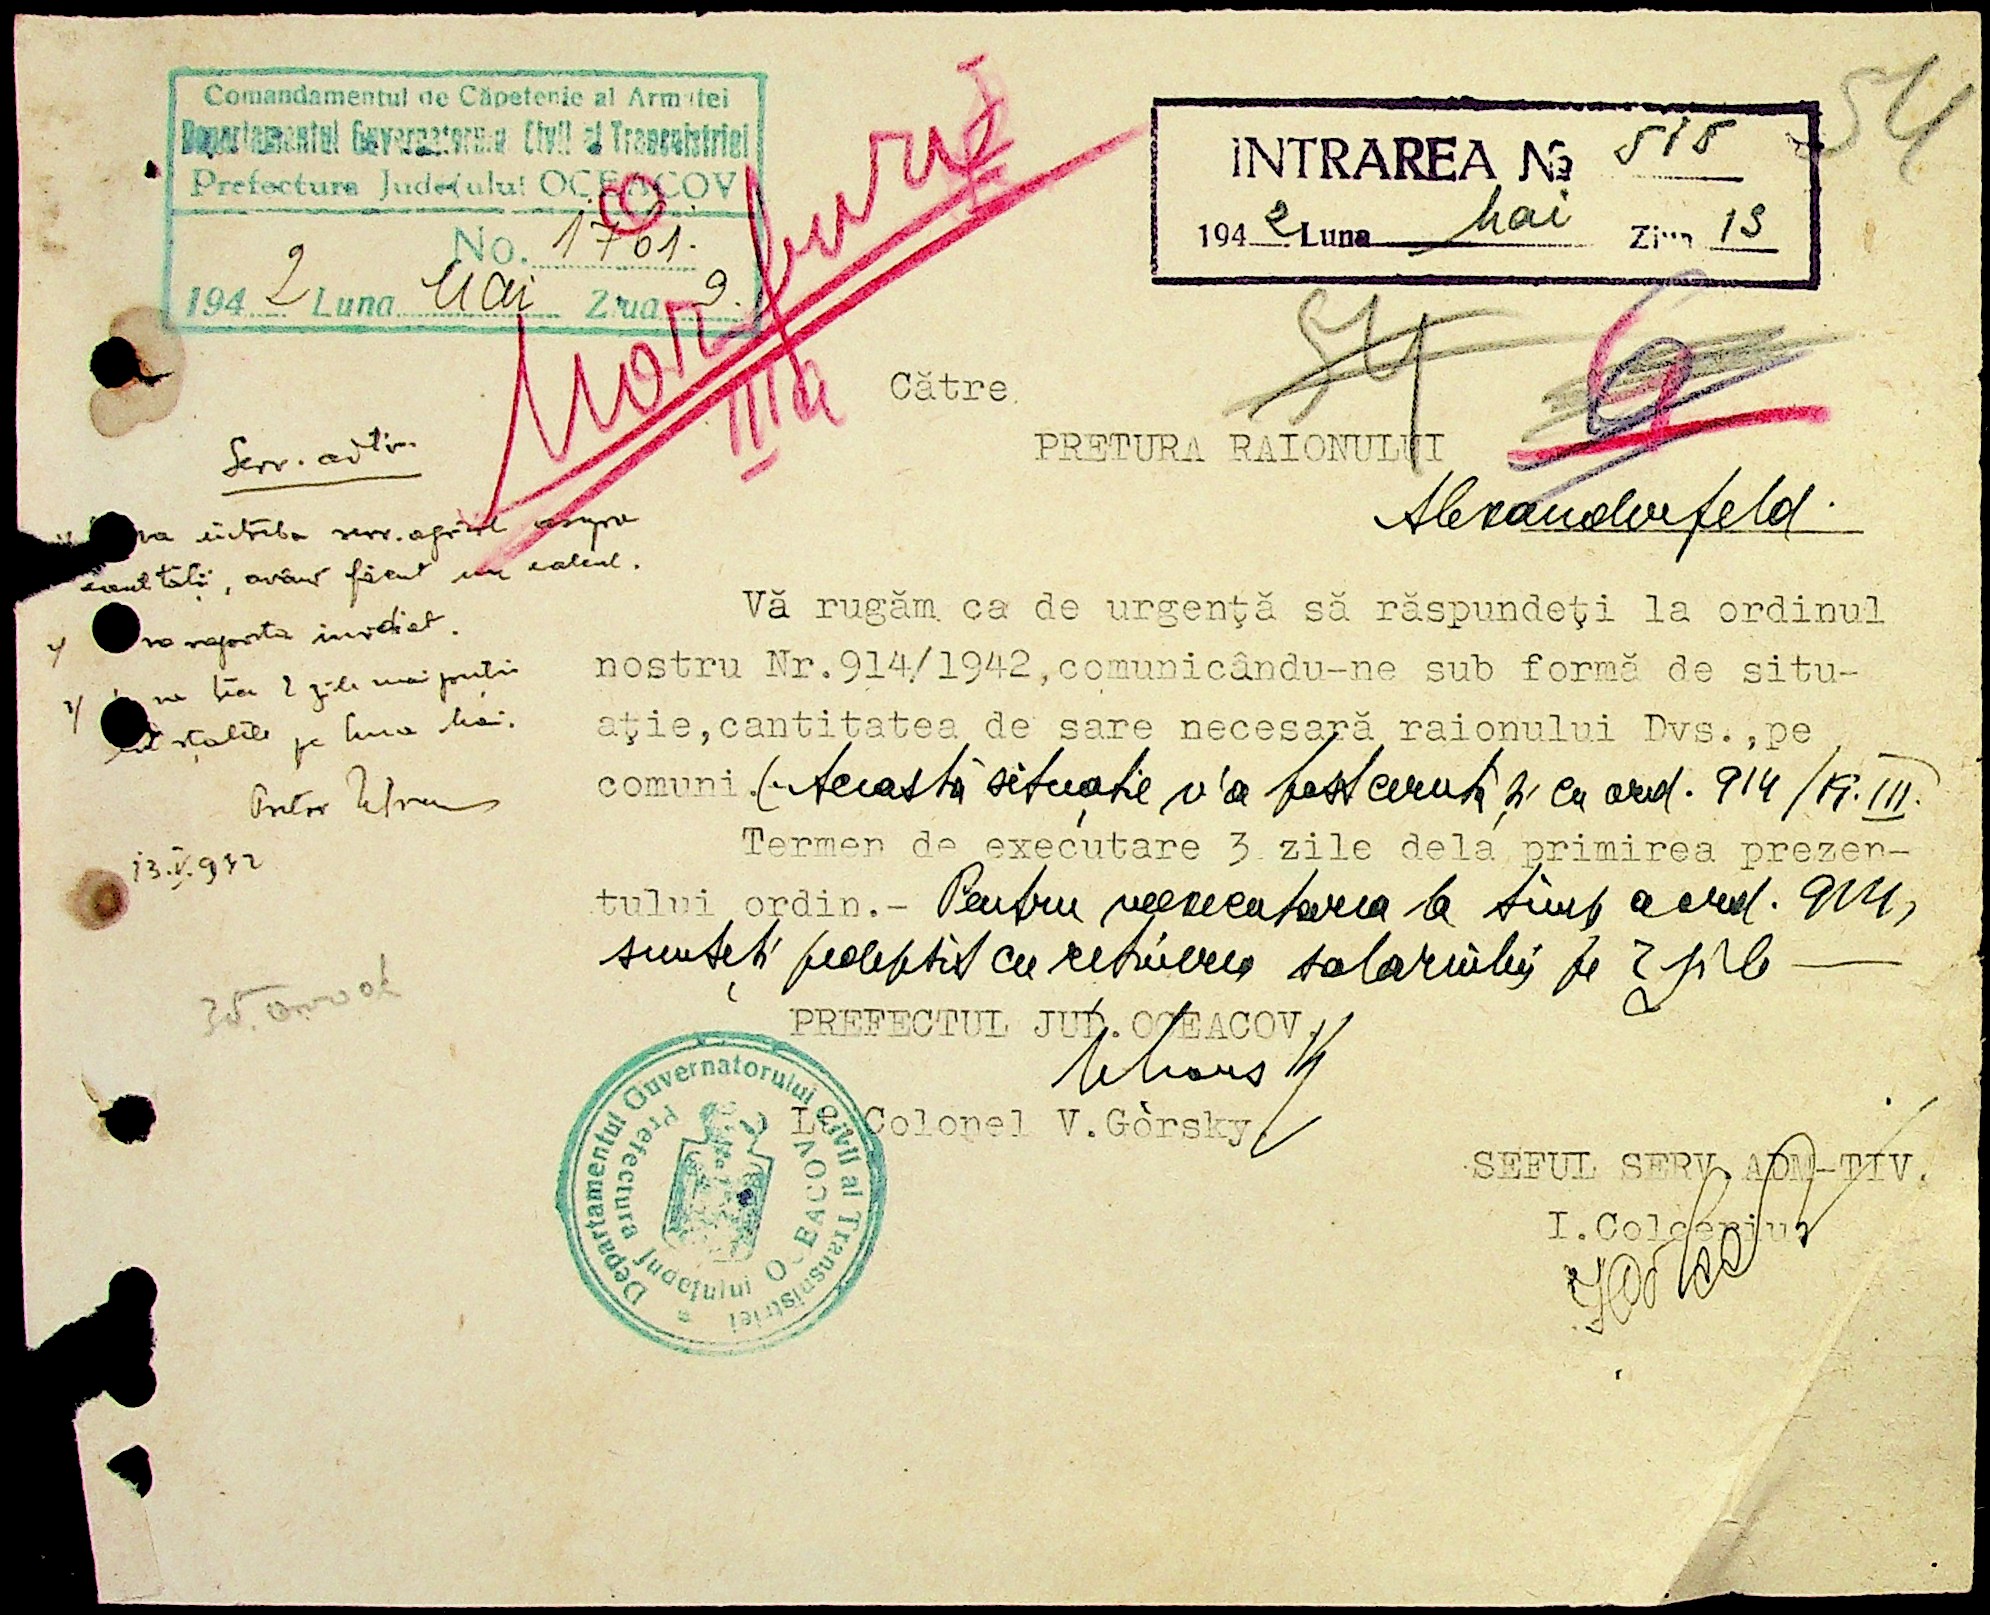 Comandamentul de Căpetenie al Armatei
Departamentul Guvernatorului Civil al Transnistriei
Prefectura Județului OCEACOV
No. 1761.
1942 Luna Mai Ziua 9.
INTRAREA № 518
1942 Luna Mai Ziua 13
54
54
6
IIIa
Către
PRETURA RAIONULUI
Alexanderfeld.
Serv. adtiv
va întreba serv. agricol asupra
, având făcut un calcul.
va raporta imediat.
2 zile mai puțin
pe luna Mai.
Pretor
13.V.942
Vă rugăm ca de urgenţă să răspundeţi la ordinul
nostru Nr.914/1942,comunicându-ne sub formă de situ-
aţie,cantitatea de sare necesară raionului Dvs.,pe
comuni.(Această situație v'a fost cerută și cu ord. 914/19.III.
Termen de executare 3 zile dela primirea prezen-
tului ordin.- Pentru neexecutarea la timp a ord. 914,
sunteți pedepsit cu reținerea salariului pe 2 zile —
PREFECTUL JUD.OCEACOV.
Lt.Colonel V.Gorsky.
SEFUL SERV.ADM-TIV.
I.
Departamentul Guvernatorului Civil al Transnistriei
Prefectura Județului OCEACOV